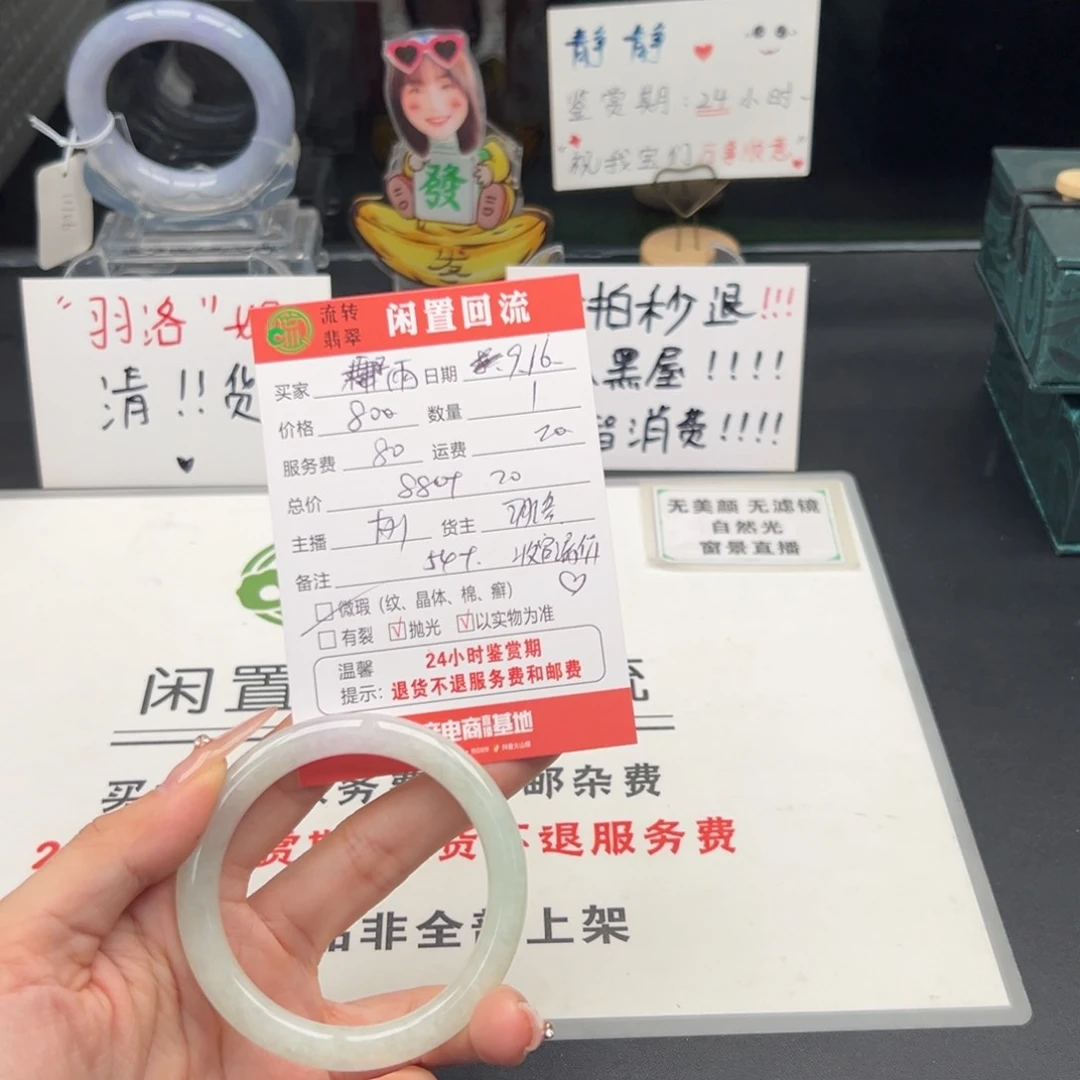 静静
鉴赏期:24小时
祝我宝们万事顺意
發
发
"羽洛"
清!!货
拍秒退!!!
黑屋!!!!
消费!!!!
无美颜 无滤镜
自然光
窗景直播
流转
翡翠
闲置回流
买家 雨 日期 9.16
价格 800 数量 1
服务费 80 运费 20
总价 880+ 20
主播 货主
备注 54+.
微瑕(纹、晶体、棉、癣)
有裂 √抛光 √以实物为准
温馨
提示:
24小时鉴赏期
退货不退服务费和邮费
电商直播基地
闲置 流
买 务费 邮杂费
2 赏期 货不退服务费
品非全部上架